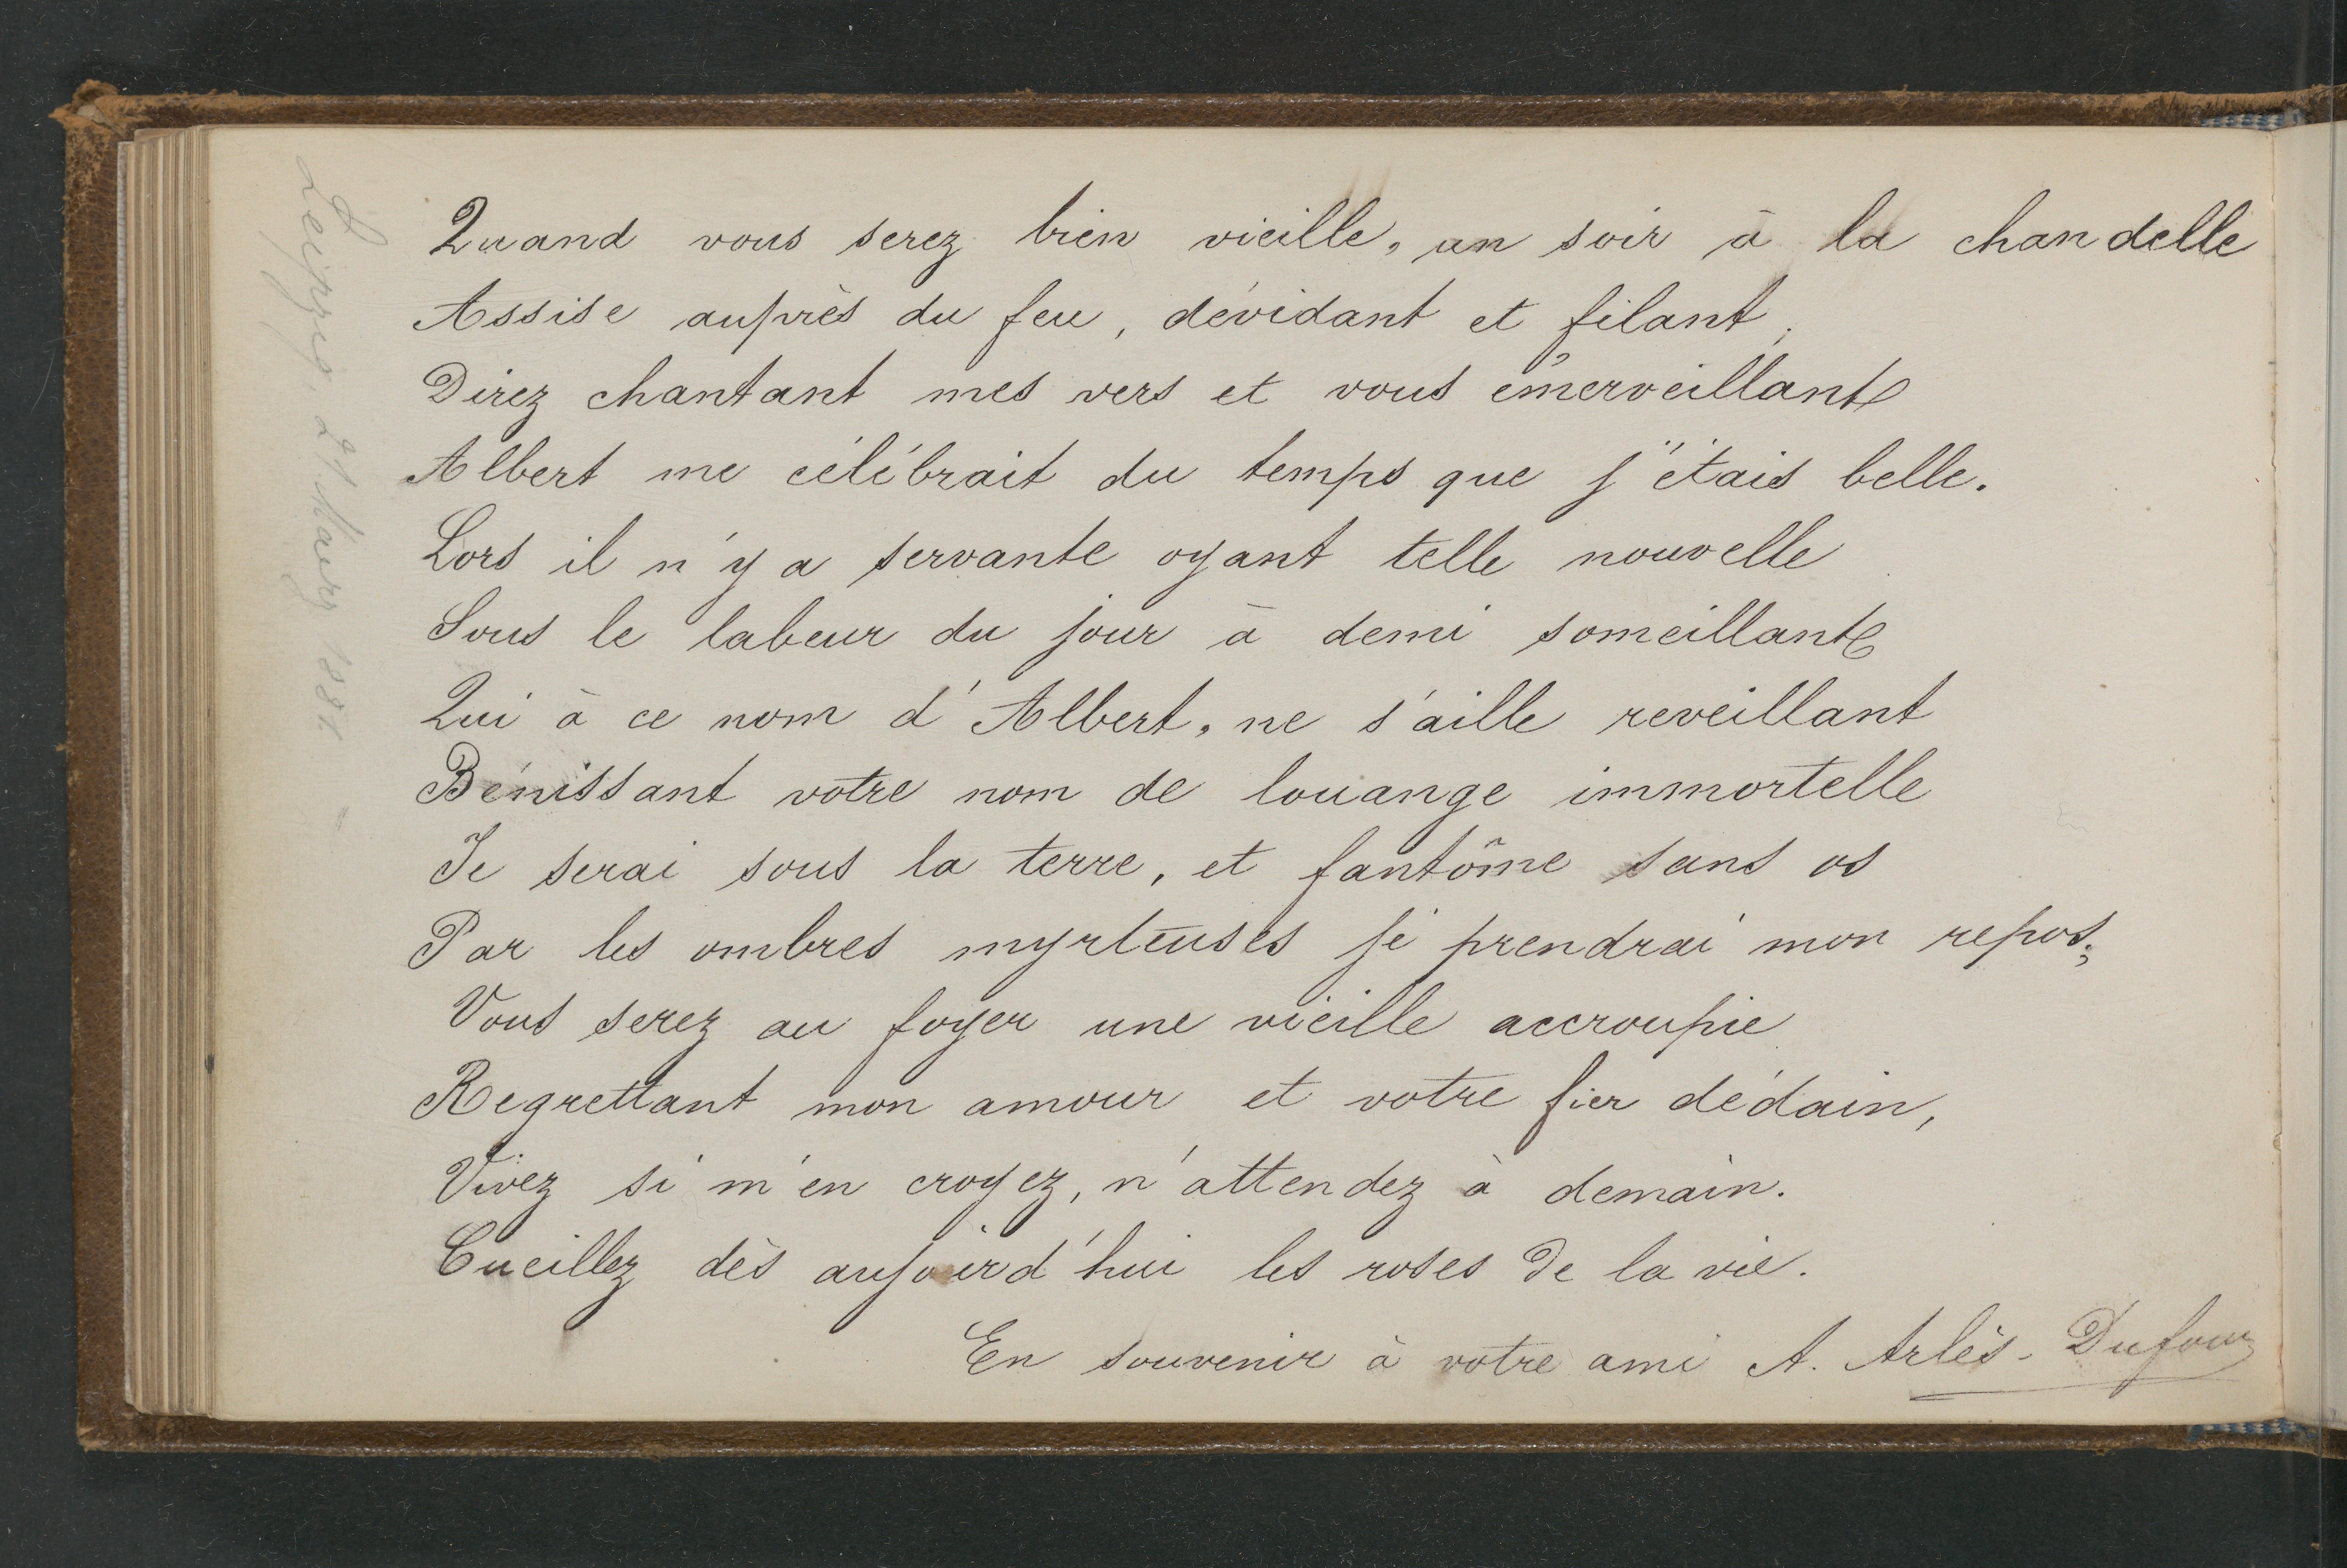 Quand vous serez bien vieille, un soir à la chandelle
Assise auprès du feu, dévidant et filant,
Direz chantant mes vers et vous émerveillant
Albert me célébrait du temps que j'étais belle.
Lors il n'y a servante oyant telle nouvelle
Sous le labeur du jour à demi someillant
Qui à ce nom d'Albert, ne s'aille reveillant
Bénissant votre nom de louange immortelle
Je serai sous la terre, et fantôme sans os
Par les ombres myrteuses je prendrai mon repos;
Vous serez au foyer une vieille accroupie
Regrettant mon amour et votre fier dédain,
Vivez si m'en croyez, n'attendez à demain.
Cueillez dès aujourd'hui les roses de la vie.
En souvenir à votre ami A. Arlès-Dufour
Leipzig, 21 März 1881